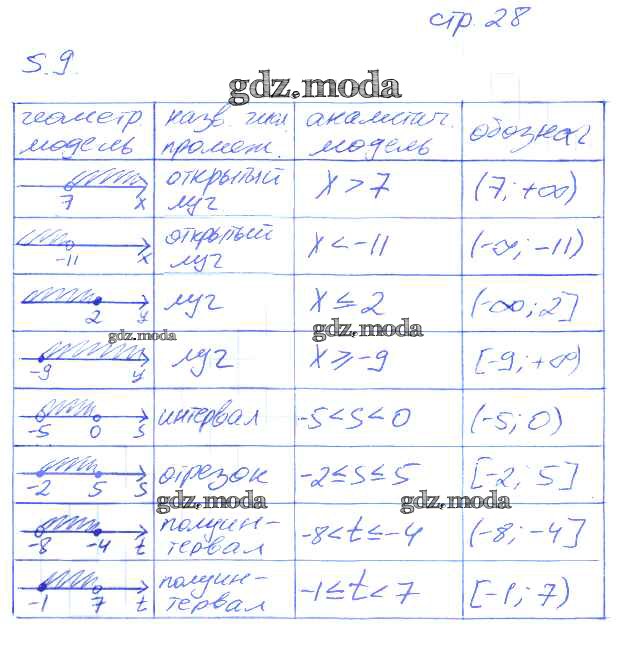 стр. 28
5.9.
gdz.moda
геометр. модель | назв. числ. промеж. | аналитич. модель | обознач
7 x | открытый луч | x > 7 | (7; +∞)
-11 x | открытый луч | x < -11 | (-∞; -11)
2 y | луч | x ≤ 2 | (-∞; 2]
gdz.moda gdz.moda
-9 y | луч | x ≥ -9 | [-9; +∞)
-5 0 s | интервал | -5 < s < 0 | (-5; 0)
-2 5 s | отрезок | -2 ≤ s ≤ 5 | [-2; 5]
gdz.moda gdz.moda
-8 -4 t | полуин-тервал | -8 < t ≤ -4 | (-8; -4]
-1 7 t | полуин-тервал | -1 ≤ t < 7 | [-1; 7)